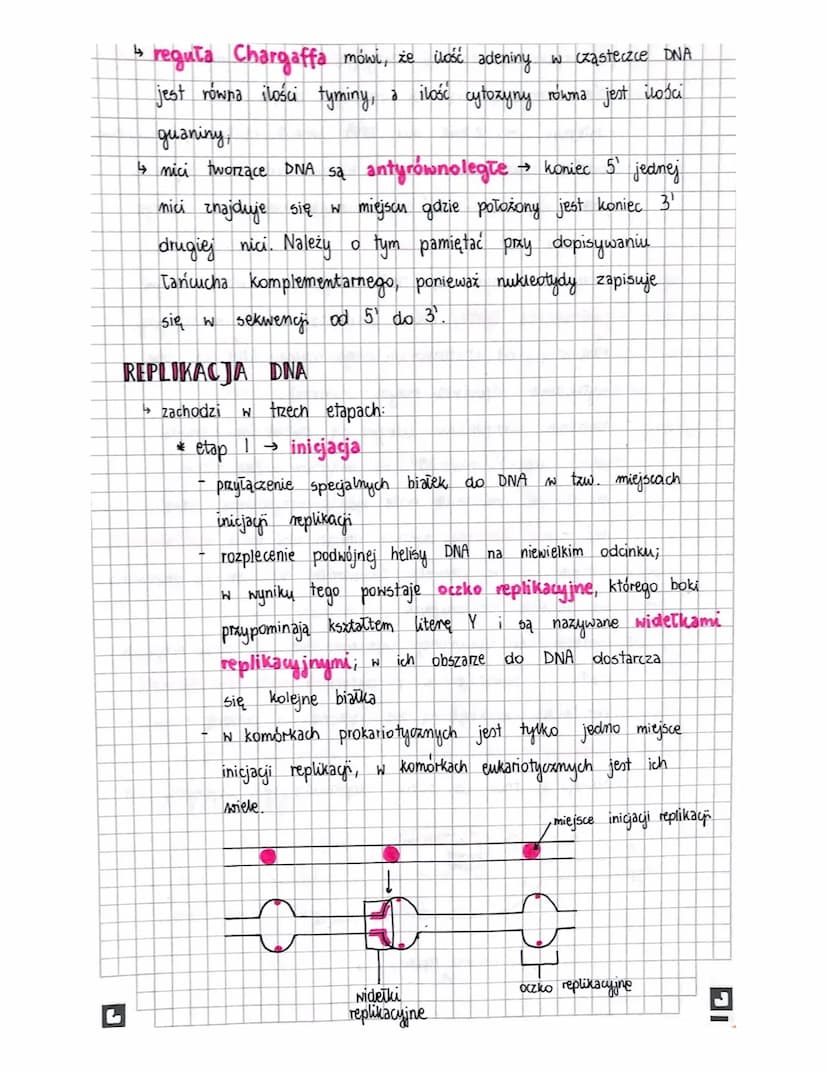 ↳ reguła Chargaffa mówi, że ilość adeniny w cząsteczce DNA
jest równa ilości tyminy, a ilość cytozyny równa jest ilości
guaniny;
↳ nici tworzące DNA są antyrównoległe → koniec 5' jednej
nici znajduje się w miejscu gdzie położony jest koniec 3'
drugiej nici. Należy o tym pamiętać przy dopisywaniu
łańcucha komplementarnego, ponieważ nukleotydy zapisuje
się w sekwencji od 5' do 3'.
REPLIKACJA DNA
↳ zachodzi w trzech etapach:
* etap 1 → inicjacja
- przyłączenie specjalnych białek do DNA w tzw. miejscach
inicjacji replikacji
- rozplecenie podwójnej helisy DNA na niewielkim odcinku;
w wyniku tego powstaje oczko replikacyjne, którego boki
przypominają kształtem literę Y i są nazywane widełkami
replikacyjnymi; w ich obszarze do DNA dostarcza
się kolejne białka
- w komórkach prokariotycznych jest tylko jedno miejsce
inicjacji replikacji, w komórkach eukariotycznych jest ich
wiele.
miejsce inicjacji replikacji
oczko replikacyjne
widełki
replikacyjne